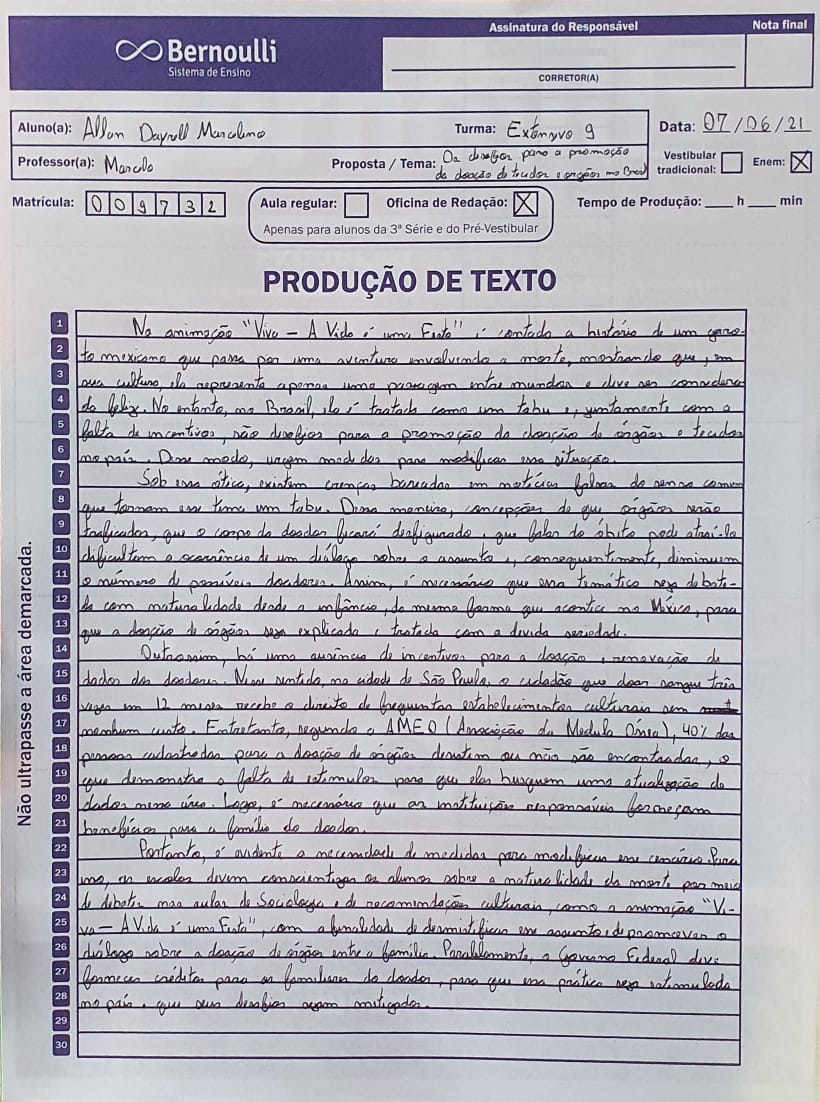 Bernoulli
Sistema de Ensino
Assinatura do Responsável
Nota final
CORRETOR(A)
Aluno(a): Allan Dayrell Marcolino
Turma: Extensivo 9
Data: 07/06/21
Professor(a): Marcelo
Proposta / Tema: Os desafios para a promoção
da doação de tecidos e órgãos no Brasil
Vestibular tradicional:
Enem: X
Matrícula: 009732
Aula regular:
Oficina de Redação: X
Apenas para alunos da 3ª Série e do Pré-Vestibular
Tempo de Produção: ____ h ____ min
PRODUÇÃO DE TEXTO
Não ultrapasse a área demarcada.
1 Na animação "Viva – A Vida é uma Festa" é contada a história de um garo-
2 to mexicano que passa por uma aventura envolvendo a morte, mostrando que, em
3 sua cultura, ela representa apenas uma passagem entre mundos e deve ser considera-
4 da feliz. No entanto, no Brasil, ela é tratada como um tabu e, juntamente com a
5 falta de incentivos, são desafios para a promoção da doação de órgãos e tecidos
6 no país. Desse modo, urgem medidas para modificar essa situação.
7 Sob essa ótica, existem crenças baseadas em notícias falsas do senso comum
8 que tornam esse tema um tabu. Dessa maneira, concepções de que órgãos serão
9 traficados, que o corpo do doador ficará desfigurado, que falar do óbito pode atraí-lo
10 dificultam a ocorrência de um diálogo sobre o assunto e, consequentemente, diminuem
11 o número de possíveis doadores. Assim, é necessário que essa temática seja debati-
12 da com naturalidade desde a infância, da mesma forma que acontece no México, para
13 que a doação de órgãos seja explicada e tratada com a devida seriedade.
14 Outrossim, há uma ausência de incentivos para a doação e renovação de
15 dados dos doadores. Nesse sentido, na cidade de São Paulo, o cidadão que doar sangue três
16 vezes em 12 meses recebe o direito de frequentar estabelecimentos culturais sem
17 nenhum custo. Entretanto, segundo a AMEO (Associação da Medula Óssea), 40% das
18 pessoas cadastradas para a doação de órgãos desistem ou não são encontradas, o
19 que demonstra a falta de estímulos para que elas busquem uma atualização de
20 dados nessa área. Logo, é necessário que as instituições responsáveis forneçam
21 benefícios para a família do doador.
22 Portanto, é evidente a necessidade de medidas para modificar esse cenário. Para
23 isso, as escolas devem conscientizar os alunos sobre a naturalidade da morte por meio
24 de debates nas aulas de Sociologia e de recomendações culturais, como a animação "Vi-
25 va – A Vida é uma Festa", com a finalidade de desmistificar esse assunto e de promover o
26 diálogo sobre a doação de órgãos entre a família. Paralelamente, o Governo Federal deve
27 fornecer créditos para os familiares do doador, para que essa prática seja estimulada
28 no país e que seus desafios sejam mitigados.
29
30